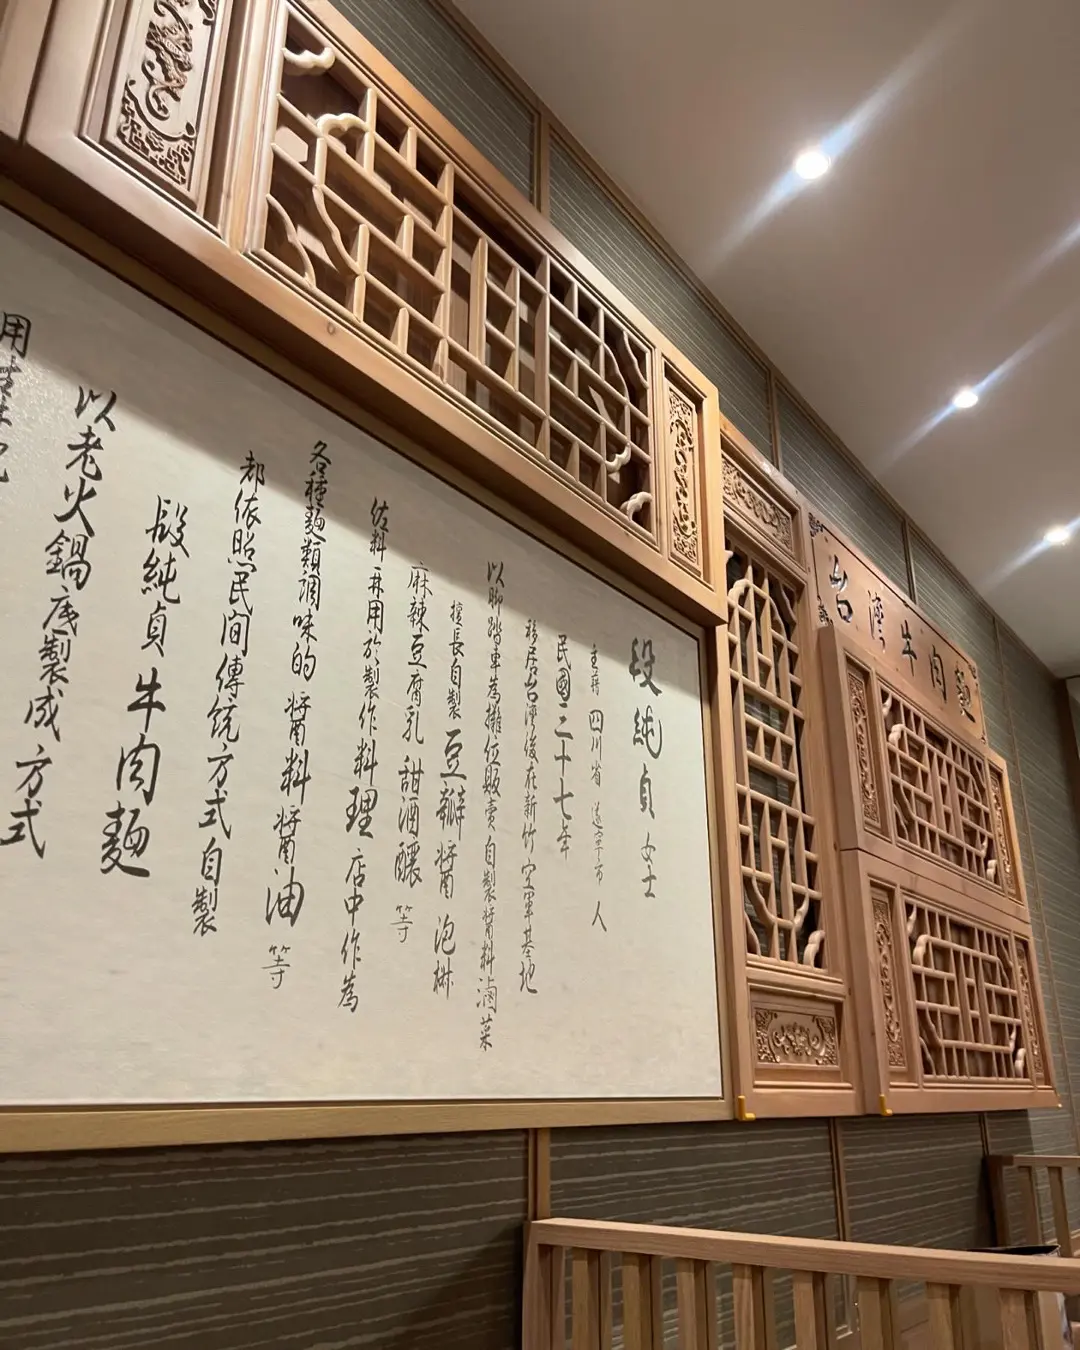 台灣牛肉麵
段純貞女士
主蒔 四川省 遂寧市 人
民國二十七年
移居台灣後在新竹空軍基地
以腳踏車為攤位販賣自製醬料滷菜
擅長自製豆瓣醬 泡椒
麻辣豆腐乳 甜酒釀 等
佐料 再用於製作料理 店中作為
各種麵類調味的 醬料 醬油 等
都依照民間傳統方式自製
段純貞牛肉麵
以老火鍋底製成方式
用